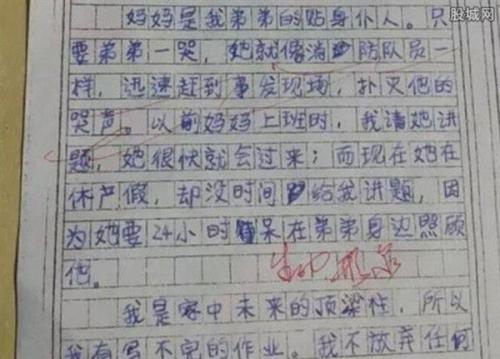 股城网
妈妈是我弟弟的贴身仆人。只
要弟弟一哭，她就像消防队员一
样，迅速赶到事发现场，扑灭他的
哭声。以前妈妈上班时，我请她讲
题，她很快就会过来；而现在她在
休产假，却没时间给我讲题，因
为她要24小时呆在弟弟身边照顾
他。
生动形象
我是家中未来的顶梁柱，所以
我有写不完的作业。我不放弃任何